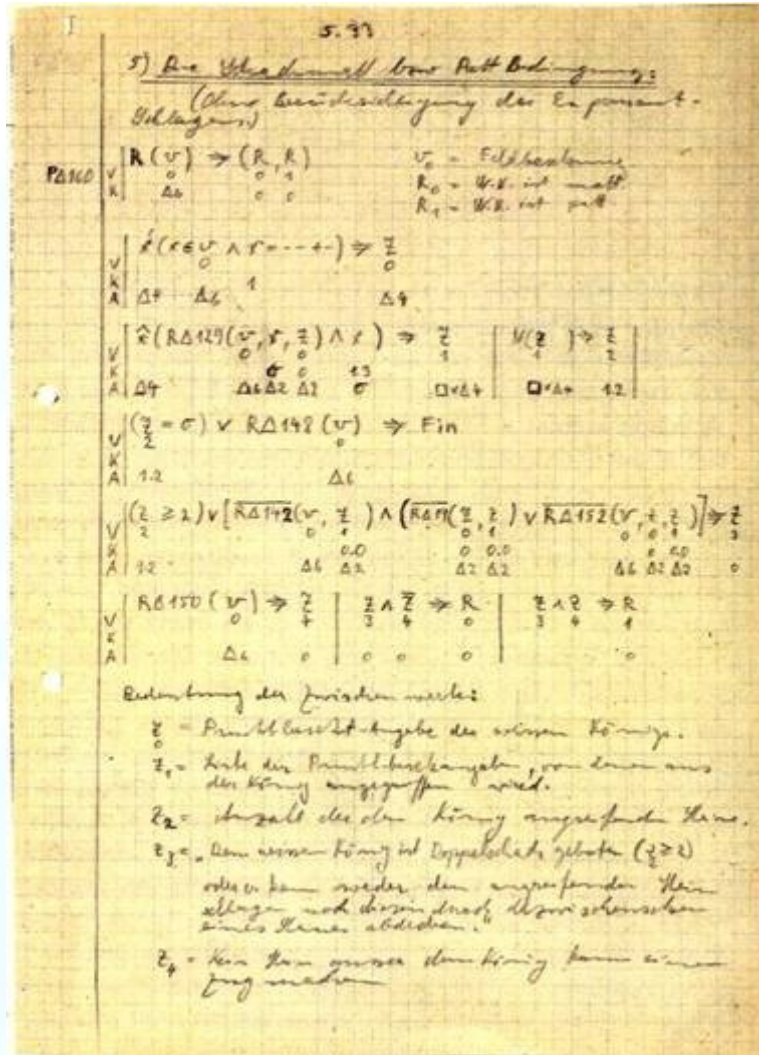 5.33
5) Die Schachmatt bzw Patt Bedingung:
(Ohne Berücksichtigung des En passant-
Schlagens)
PΔ160
R(v) ⇒ (R, R)
V 0 0 1
K Δ6 0 0
v0 = Feldbesetzung
R0 = W.K. ist matt
R1 = W.K. ist patt
x́(x∈v ∧ x=--+-) ⇒ Z
V 0 0
K 1
A Δ4 Δ6 Δ4
x̂(RΔ129(v, x, Z) ∧ x) ⇒ Z | N(Z) ⇒ Z
V 0 0 1 1 2
K σ 0 1.3
A Δ4 Δ6 Δ2 Δ2 σ □×Δ4 □×Δ4 1.2
(Z = σ) ∨ RΔ148(v) ⇒ Fin
V 2 0
K
A 1.2 Δ6
(Z ≥ 2) ∨ [RΔ142(v, Z) ∧ (Z, Z) ∨ RΔ152(v, Z, Z)] ⇒ Z
V 2 0 1 0 1 0 0 1 3
K 0.0 0 0.0 0 0.0
A 1.2 Δ6 Δ2 Δ2 Δ2 Δ6 Δ2 Δ2 0
RΔ150(v) ⇒ Z | Z ∧ Z̅ ⇒ R | Z ∧ Z ⇒ R
V 0 4 3 4 0 3 4 1
K
A Δ6 0 0 0 0 0
Bedeutung der Zwischenwerte:
Z0 = Punktbesetzt-Angabe des weissen Königs.
Z1 = Liste der Punktbesetztangaben, von denen aus
der König angegriffen wird.
Z2 = Anzahl der den König angreifenden Steine.
Z3 = „Dem weissen König ist Doppelschach geboten (Z2 ≥ 2)
oder er kann weder den angreifenden Stein
schlagen noch diesen durch Dazwischenziehen
eines Steines abdecken."
Z4 = Kein Stein ausser dem König kann einen
Zug machen